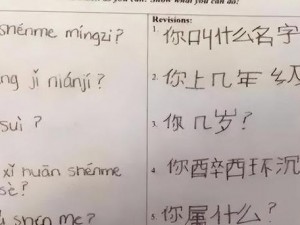 as you can! Show what you can do!
Revisions:
shénme míngzi?
1. 你叫什么名字
ng jǐ niánjí?
2. 你上几年级
suì ?
3. 你几岁?
xǐ huān shénme
sè?
4. 你 西环沉
shén me?
5. 你属什么?